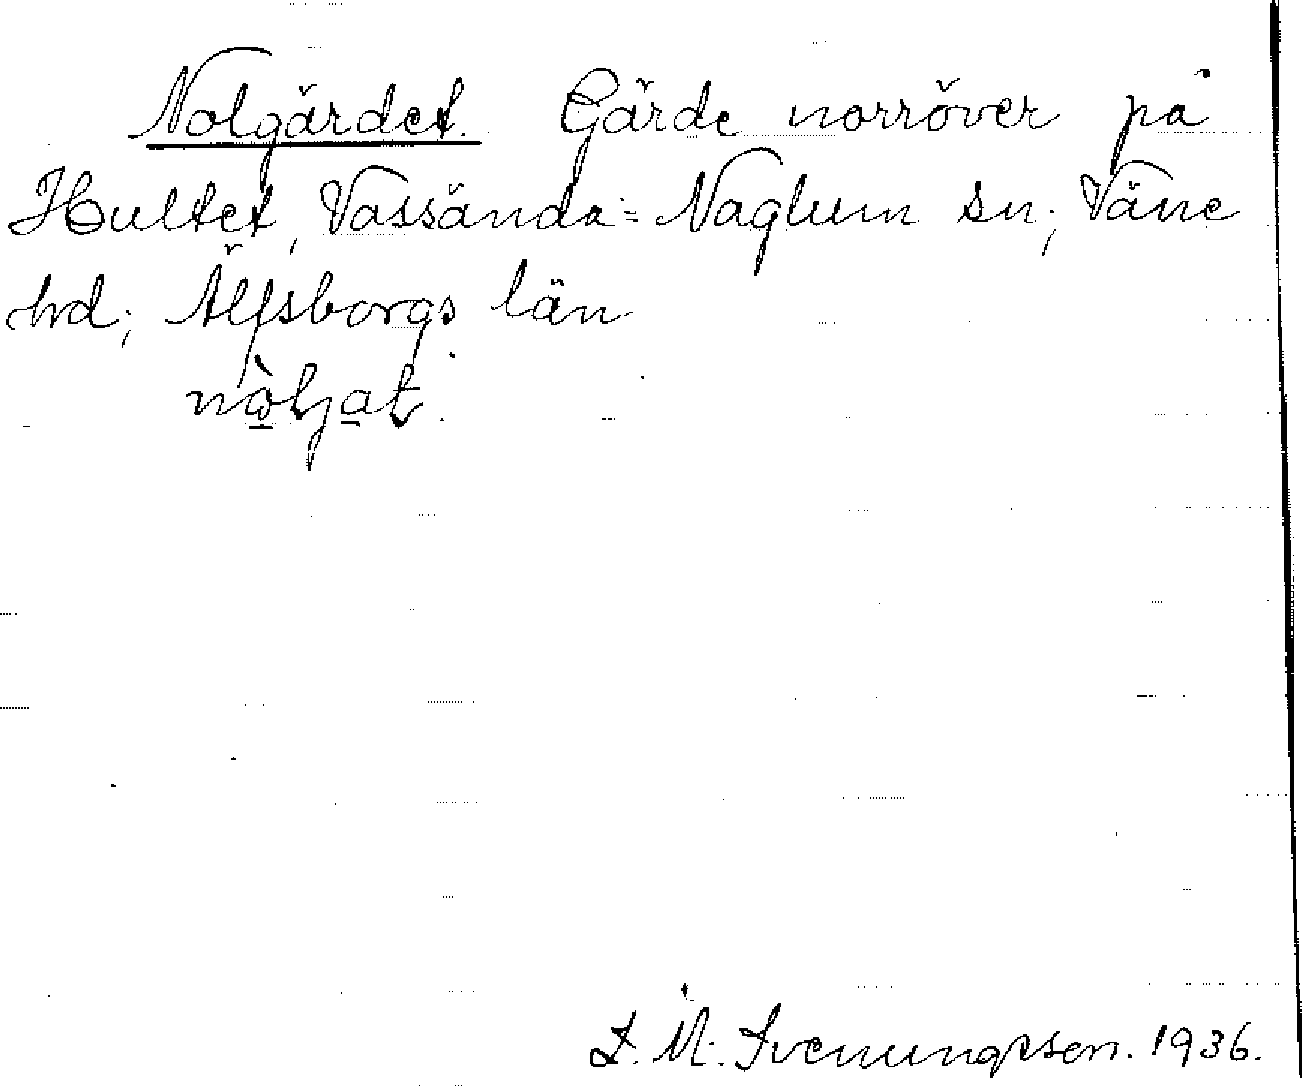 Nolgärdet. Gärde norröver på
Hultet, Vassända-Naglum sn; Väne
hd; Älfsborgs län
L. M. Svenungsson. 1936.